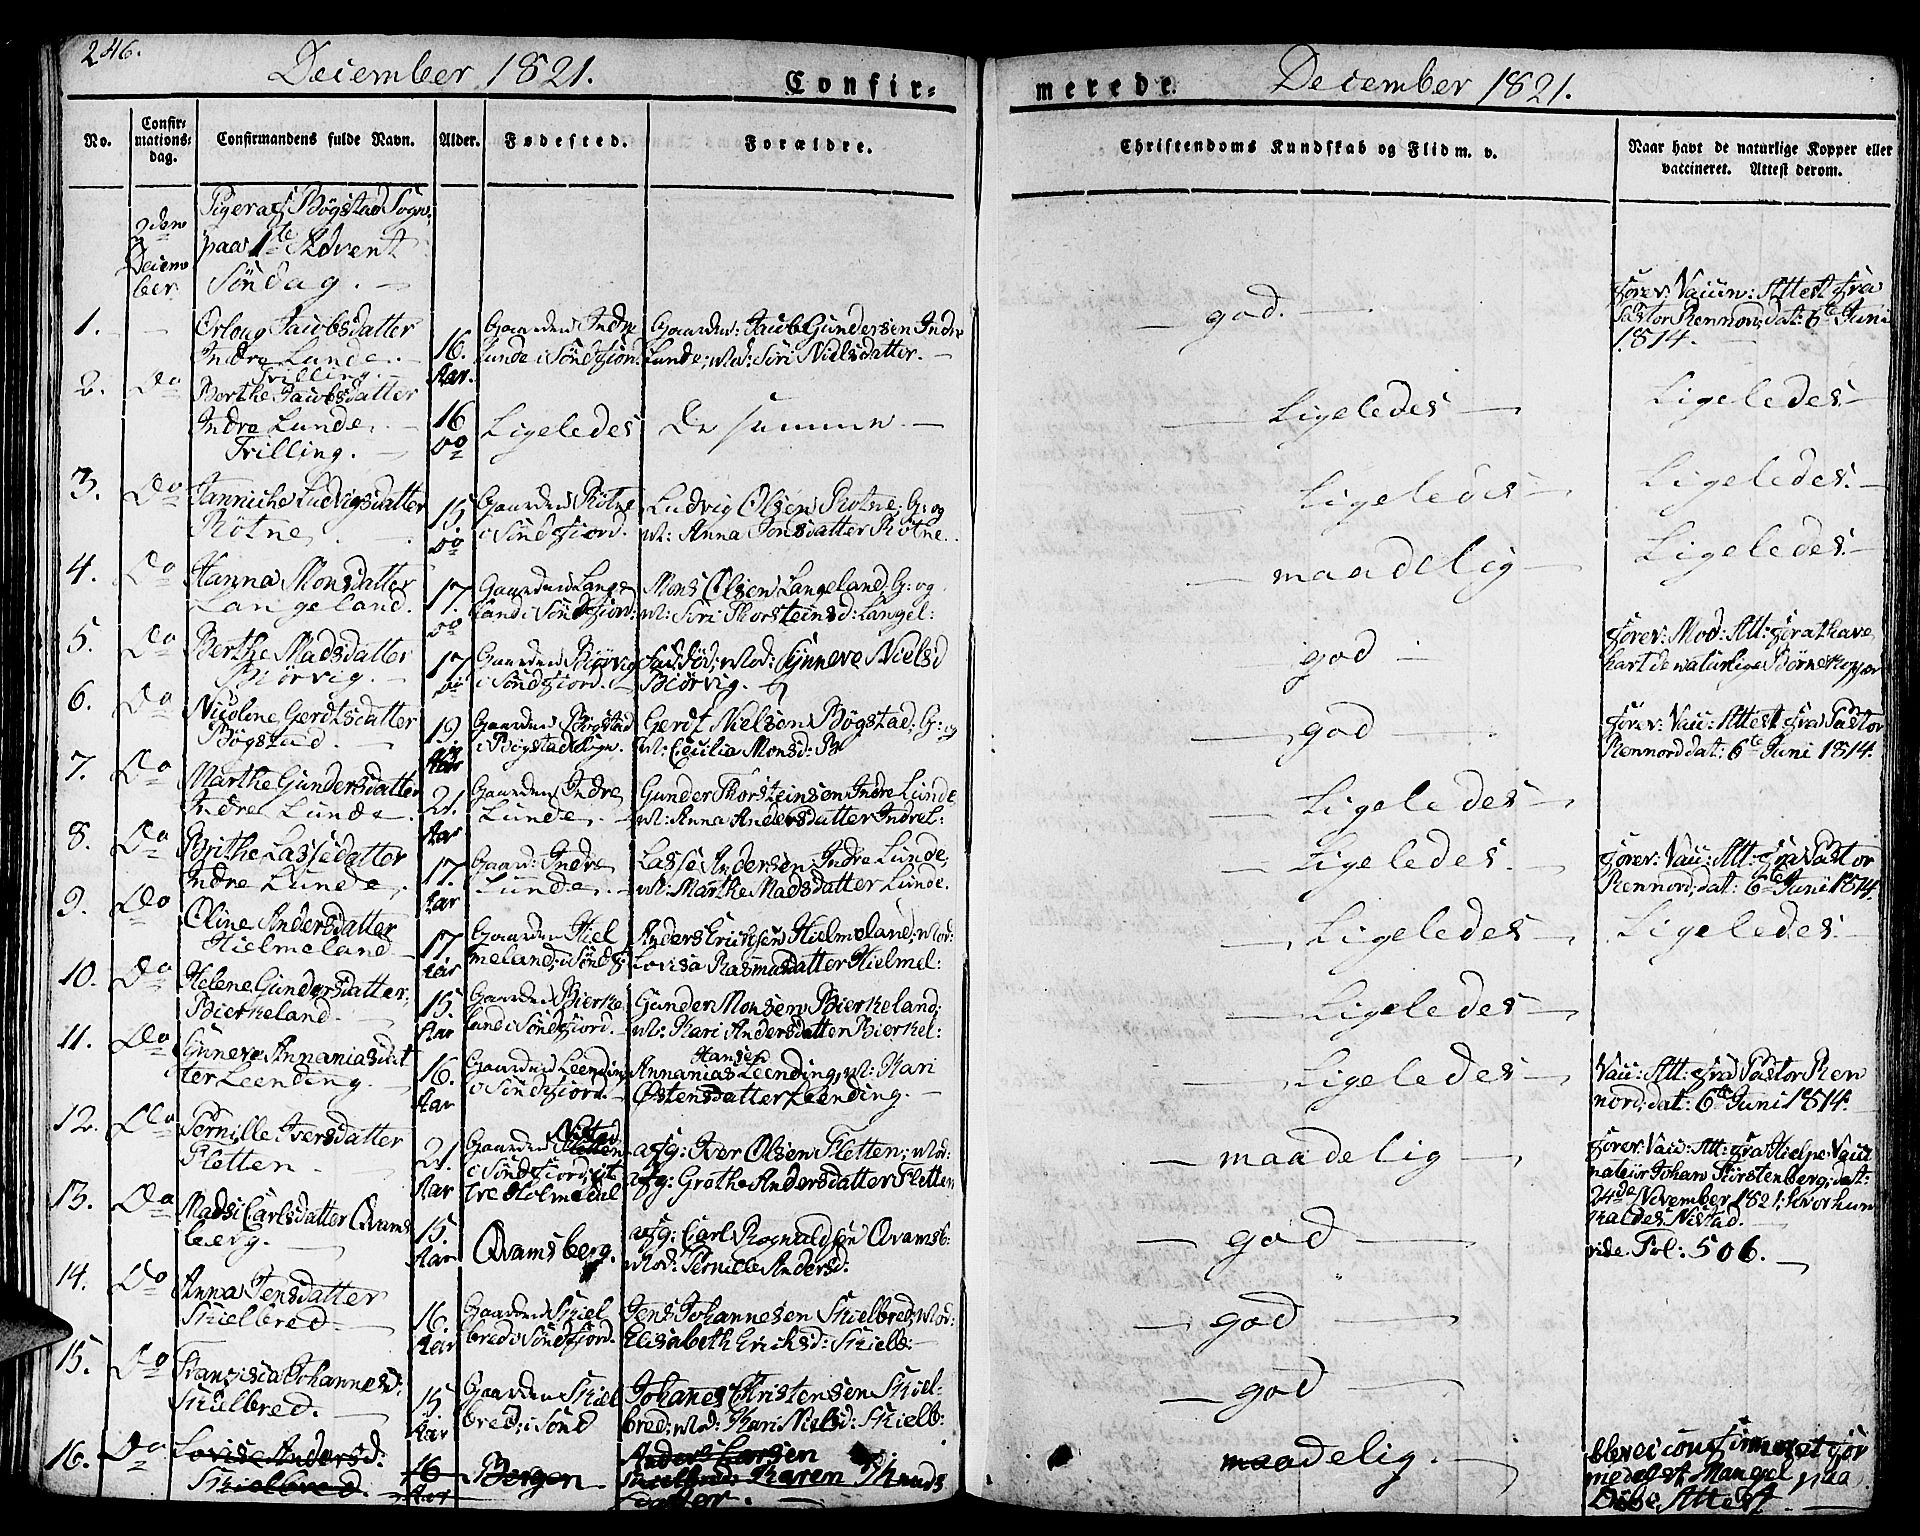 246.
December 1821.
Confir-
merede.
December 1821.
No.
Confir-
mations-
dag.
Confirmandens fulde Navn.
Alder.
Fødested.
Forældre.
Christendoms Kundskab og Flid m. v.
Naar havt de naturlige Kopper eller
vaccineret. Attest derom.
2den
Decem
ber
Piger af Bögstad Sogn,
paa 1te Advent
Söndag.
1.
Jacobsdatter
Indre Lunde.
Trilling.
16.
Aar.
Gaarden Indre
Lunde i Söndfiord.
Gaarden: Jacob Gundersen Indre
Lunde; Mod: Siri Nielsdatter.
god.
forev: Vaccin: Attest fra
Pastor Rennord, dat: 6te Juni
1814.
2.
Do
Berthe Jacobsdatter
Indre Lunde,
Trilling.
16
do
Ligeledes
De samme.
Ligeledes
Ligeledes.
3.
Do
Janniche Ludvigsdatter
Röine
15.
do
Gaarden Röine
i Söndfiord.
Ludvig Olsen Röine, G: og
M: Anna Jonsdatter Röine.
Ligeledes
Ligeledes.
4.
Do
Hanna Monsdatter
Langeland.
17.
do
Gaarden Lange
land i Söndfiord:
Mons Olsen Langeland, G: og
M: Siri Thorsteinsd: Langel:
maadelig
Ligeledes.
5.
Do
Berthe Madsdatter
Biörvig.
17
do
Gaarden Biörvig
i Söndfiord.
Fad: död; Mod: Synneve Nielsd
Biörvig.
god
forev: Mod: Att: for at have
havt de naturlige Börnekopper
6.
Do
Nicoline Gerdtsdatter
Bögstad
19.
Aar
Gaarden Bögstad
i Bögstad Sogn.
Gerdt Nielsen Bögstad, G: og
M: Cecilia Monsd: B
god
forev: Vacc: Attest fra Pastor
Rennord dat: 6te Juni 1814.
7.
Do
Marthe Gundersdatter
Indre Lunde.
21.
Aar
Gaarden Indre
Lunde,
Gunder Thorsteinsen Indre Lunde
M: Anna Andersdatter Indre L:
Ligeledes
8.
Do
Brithe Lassedatter
Indre Lunde,
17.
Aar
Gaard: Indre
Lunde.
Lasse Andersen Indre Lunde,
M: Marthe Madsdatter Lunde.
Ligeledes.
forev: Vacc: Att: fra Pastor
Rennord, dat: 6te Juni 1814.
9.
Do
Oline Andersdatter
Hielmeland
17
Aar
Gaarden Hiel
meland, i Söndf:
Anders Erichsen Hielmeland, Mod:
Lovisa Rasmusdatter Hielmel:
Ligeledes
Ligeledes.
10.
Do
Helene Gundersdatter,
Bierkeland.
15.
Aar
Gaarden Bierke
land i Söndfiord.
Gunder Monsen Bierkeland;
M: Kari Andersdatter Bierkel:
Ligeledes
11.
Do
Synneve Annaniasdat
ter Leending.
16.
Aar
Gaarden Leending
i Söndfiord.
Hansen
Annanias Leending, M: Kari
Østensdatter Leending.
Ligeledes
Vacc: Att: fra Pastor Ren
nord, dat: 6te Juni 1814.
12.
Do
Pernille Iversdatter
Fletten
21.
Aar
Nistad
Gaarden Fletten
i Söndfiord, Yt
tre Holmedal
afg: Iver Olsen Fletten; Mod:
afg: Grathe Andersdatter Fletten
maadelig
forev: Vacc: Att: fra Hielpe-Vacci
nateur Johan Fürstenberg, dat:
24de November 1821, hvor hun
kaldes Nistad.
vide. Fol: 506.
13.
Do
Madsi Carlsdatter Qvams
berg.
15.
Aar
Qvamsberg.
afg: Carl Rognaldsen Qvamsb:
Mod: Pernille Andersd:
god
14.
Do
Anna Jensdatter
Skielbred
16.
Aar
Gaarden Skiel
bred i Söndfiord.
Jens Johannesen Skielbred, Mod:
Elisabeth Ericksd: Skielb:
god
15.
Do
Johannesd:
Skielbred.
15
Aar
Gaarden Skiel
bred, i Sönd
Johanes Christensen Skiel-
bred; Mod: Kari Nielsd: Skielb:
god
16.
Do
Lovise Andersd:
Skielbred.
16
Aar
Bergen
Anders Larsen
Skielbred Karen Knuds
datter.
maadelig.
blev ei confirmeret for
medelst Mangel paa
Döbe Attest.